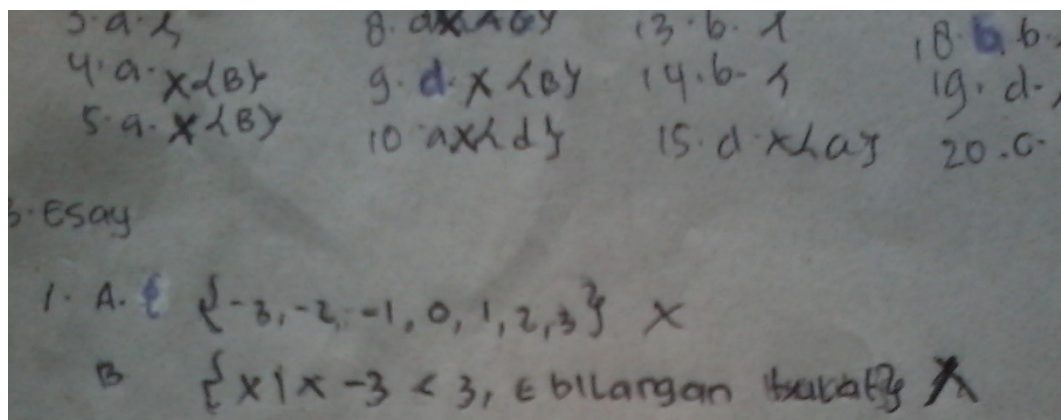 3. a. 8. a x {B} 13. b. 18. b b.
4. a. x {B} 9. d. x {B} 14. b. 19. d.
5. a. x {B} 10. a x {d} 15. d. x {a} 20. c.
B. Esay
1. A. { {-3, -2, -1, 0, 1, 2, 3} x
B {x | x -3 < 3, ε bilangan bulat}